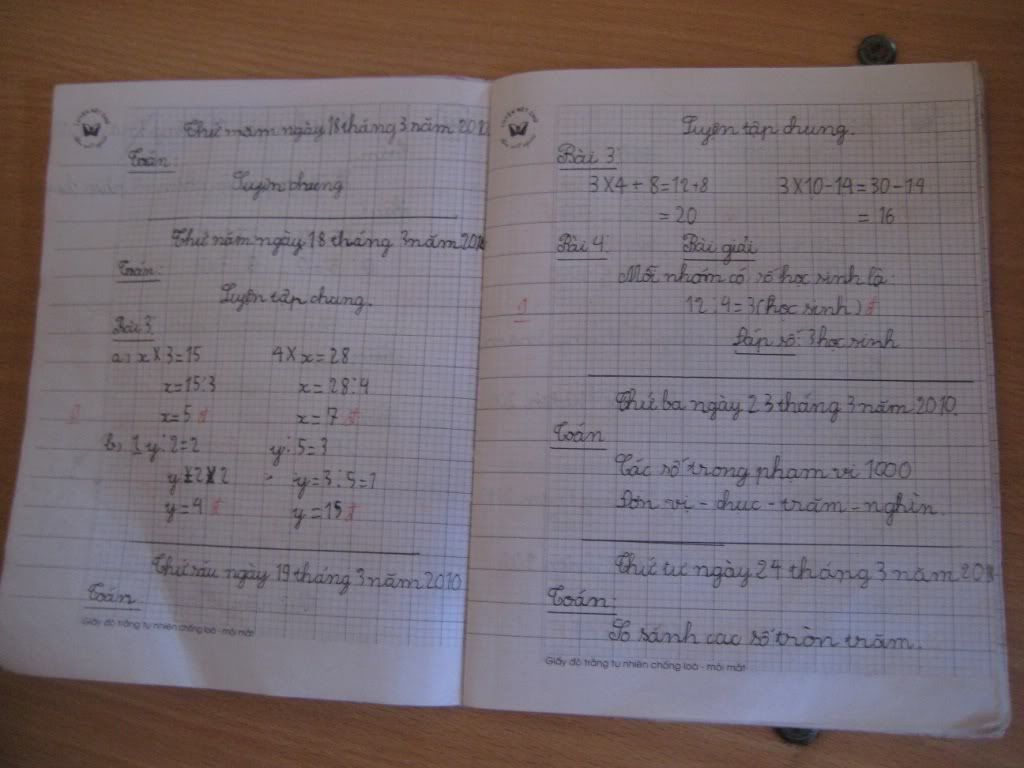 Thứ năm ngày 18 tháng 3 năm 2010
Toán:
Luyện chung
Thứ năm ngày 18 tháng 3 năm 2010
Toán:
Luyện tập chung.
Bài 3
a, x X 3 = 15 4 X x = 28
x = 15 : 3 x = 28 : 4
x = 5 x = 7
b, y : 2 = 2 y : 5 = 3
y = 2 X 2 y = 3 : 5 = 1
y = 4 y = 15
Thứ sáu ngày 19 tháng 3 năm 2010
Toán
Giấy độ trắng tự nhiên chống loá - mỏi mắt
Luyện tập chung.
Bài 3:
3 X 4 + 8 = 12 + 8 3 X 10 - 14 = 30 - 14
= 20 = 16
Bài 4 Bài giải
Mỗi nhóm có số học sinh là:
12 : 4 = 3 (học sinh)
Đáp số: 3 học sinh
Thứ ba ngày 23 tháng 3 năm 2010.
Toán
Các số trong phạm vi 1000
Đơn vị - chục - trăm - nghìn.
Thứ tư ngày 24 tháng 3 năm 2010
Toán:
So sánh các số tròn trăm.
Giấy độ trắng tự nhiên chống loá - mỏi mắt